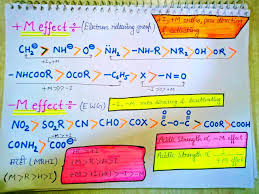 +M effect :- (Electron releasing group)
+I, +M ortho, para directing & activating
CH2⊖ > NH⊖ > O⊖ > NH2 > NH-R > NR2 > OH > OR >
-NHCOR > OCOR > -C6H5 > X > -N=O
-M effect :- (EWG)
-I, -M meta directing & deactivating
NO2 > SO2R > CN > CHO > COX > C-O-C > COOR > COOH
O O
CONH2 > COO⊖
Acidic Strength α -M effect
(MRHI)
M > R > H > I
Acidic Strength α